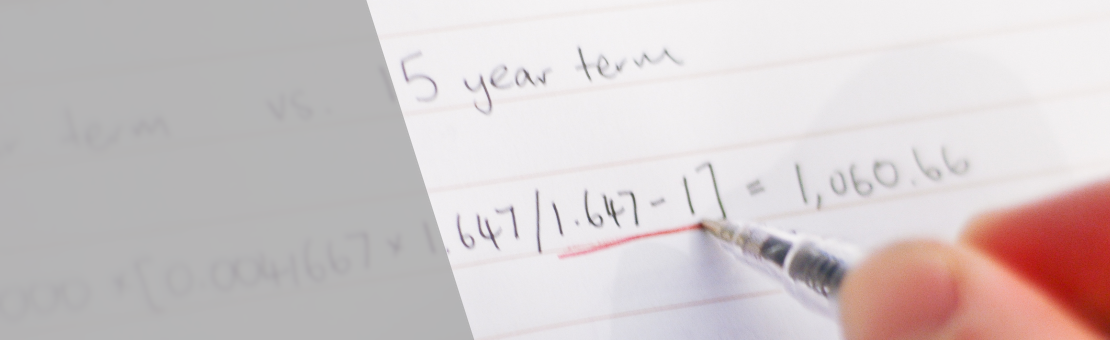 term vs. 15 year term
000 × [0.0041667 × 1.647/1.647-1] = 1,060.66